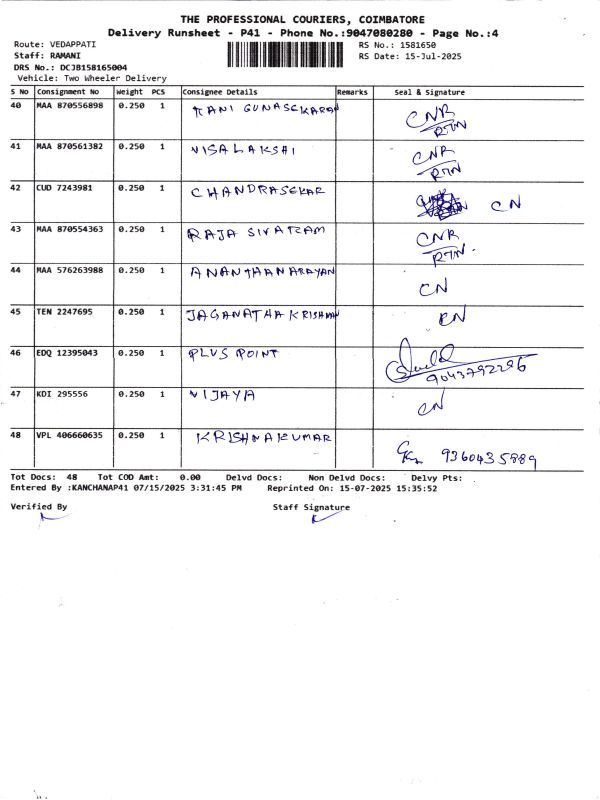 THE PROFESSIONAL COURIERS, COIMBATORE
Delivery Runsheet - P41 - Phone No.:9047080280 - Page No.:4
Route: VEDAPPATI RS No.: 1581650
Staff: RAMANI RS Date: 15-Jul-2025
DRS No.: DCJB158165004
Vehicle: Two Wheeler Delivery
S No Consignment No Weight PCS Consignee Details Remarks Seal & Signature
40 MAA 870556898 0.250 1 RANI GUNASEKARAN CNR RTN
41 MAA 870561382 0.250 1 VISALAKSHI CNR RTN
42 CUD 7243981 0.250 1 CHANDRASEKAR CN
43 MAA 870554363 0.250 1 RAJA SIVARAM CNR RTN
44 MAA 576263988 0.250 1 ANANTHANARAYAN CN
45 TEN 2247695 0.250 1 JAGANATHA KRISHNAN CN
46 EDQ 12395043 0.250 1 PLUS POINT 9043792296
47 KDI 295556 0.250 1 VIJAYA CN
48 VPL 406660635 0.250 1 KRISHNAKUMAR 9360435989
Tot Docs: 48 Tot COD Amt: 0.00 Delvd Docs: Non Delvd Docs: Delvy Pts:
Entered By :KANCHANAP41 07/15/2025 3:31:45 PM Reprinted On: 15-07-2025 15:35:52
Verified By Staff Signature